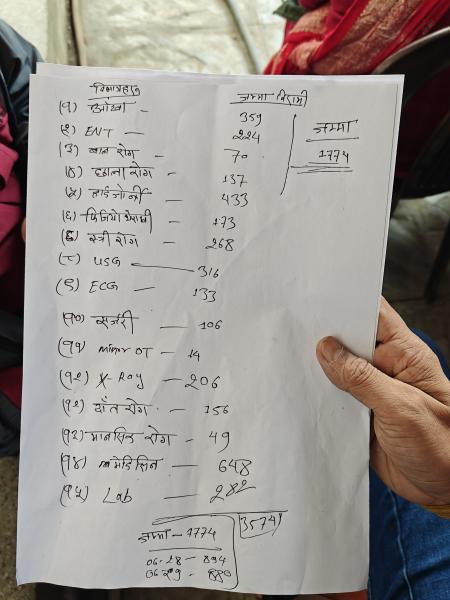 विभागहरु जम्मा बिरामी
(१) आँखा - 359
(२) ENT - 224 जम्मा
(३) बाल रोग - 70 1774
(४) छाला रोग - 137
(५) हाडजोर्नी 433
(६) फिजियोथेरापी 173
(७) स्त्री रोग - 268
(८) USG - 316
(९) ECG - 133
(१०) सर्जरी - 106
(११) minor OT - 14
(१२) X-Ray - 206
(१२) दाँत रोग - 156
(१३) मानसिक रोग - 49
(१४) मेडिसिन - 648
(१५) Lab - 282
जम्मा - 1774 3574
06-28 - 894
06-29 - 880